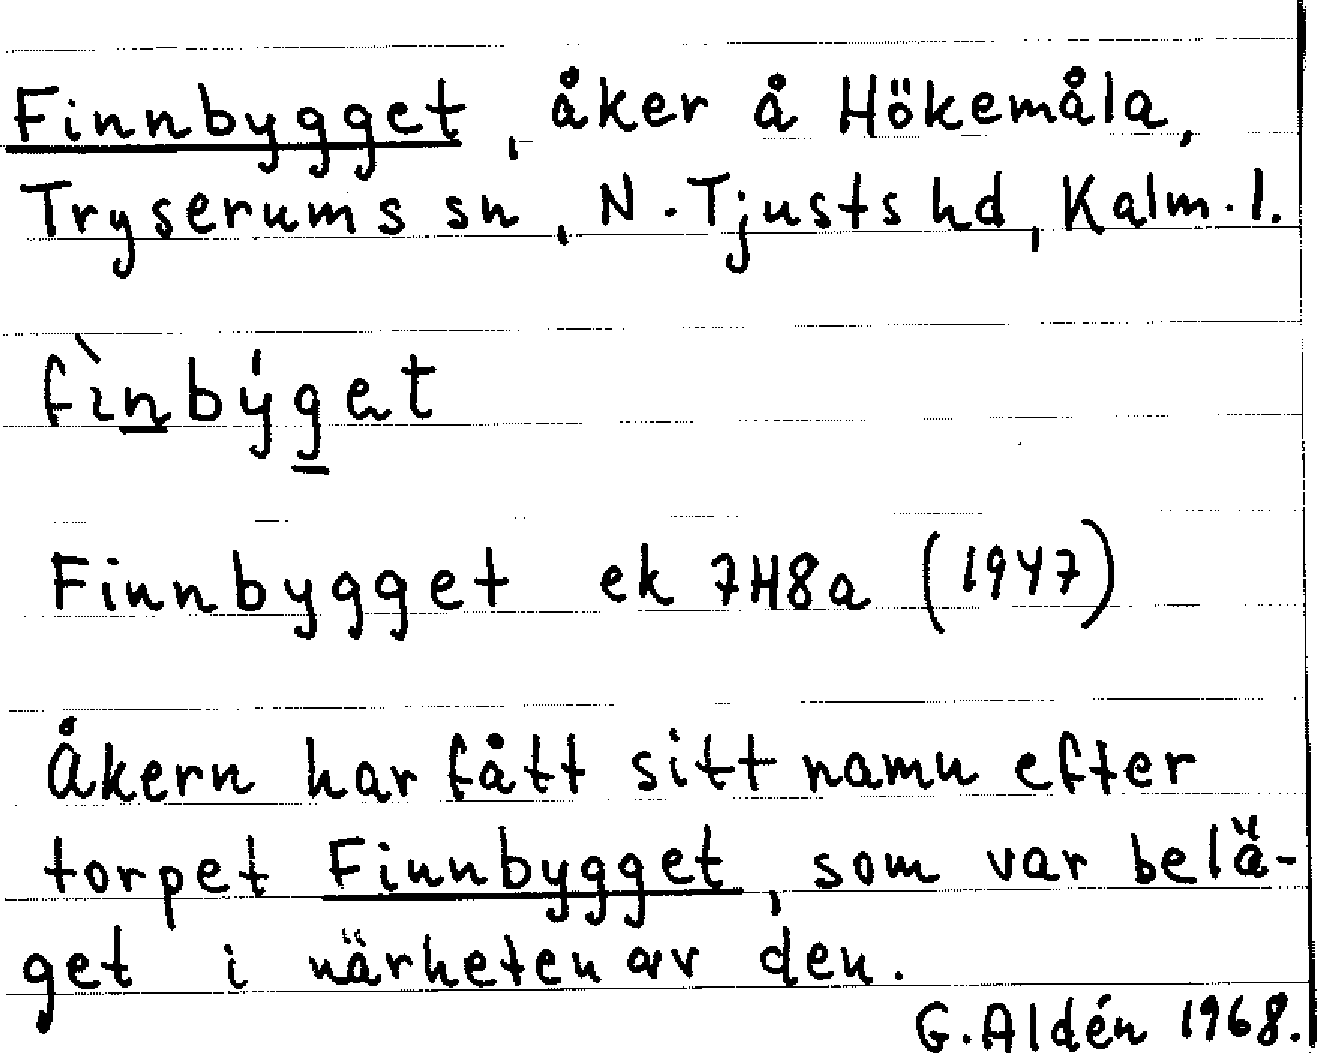 Finnbygget, åker å Hökemåla,
Tryserums sn, N. Tjusts hd, Kalm. l.
fìnbýget
Finnbygget ek 7H8a (1947)
Åkern har fått sitt namn efter
torpet Finnbygget, som var belä-
get i närheten av den.
G. Aldén 1968.